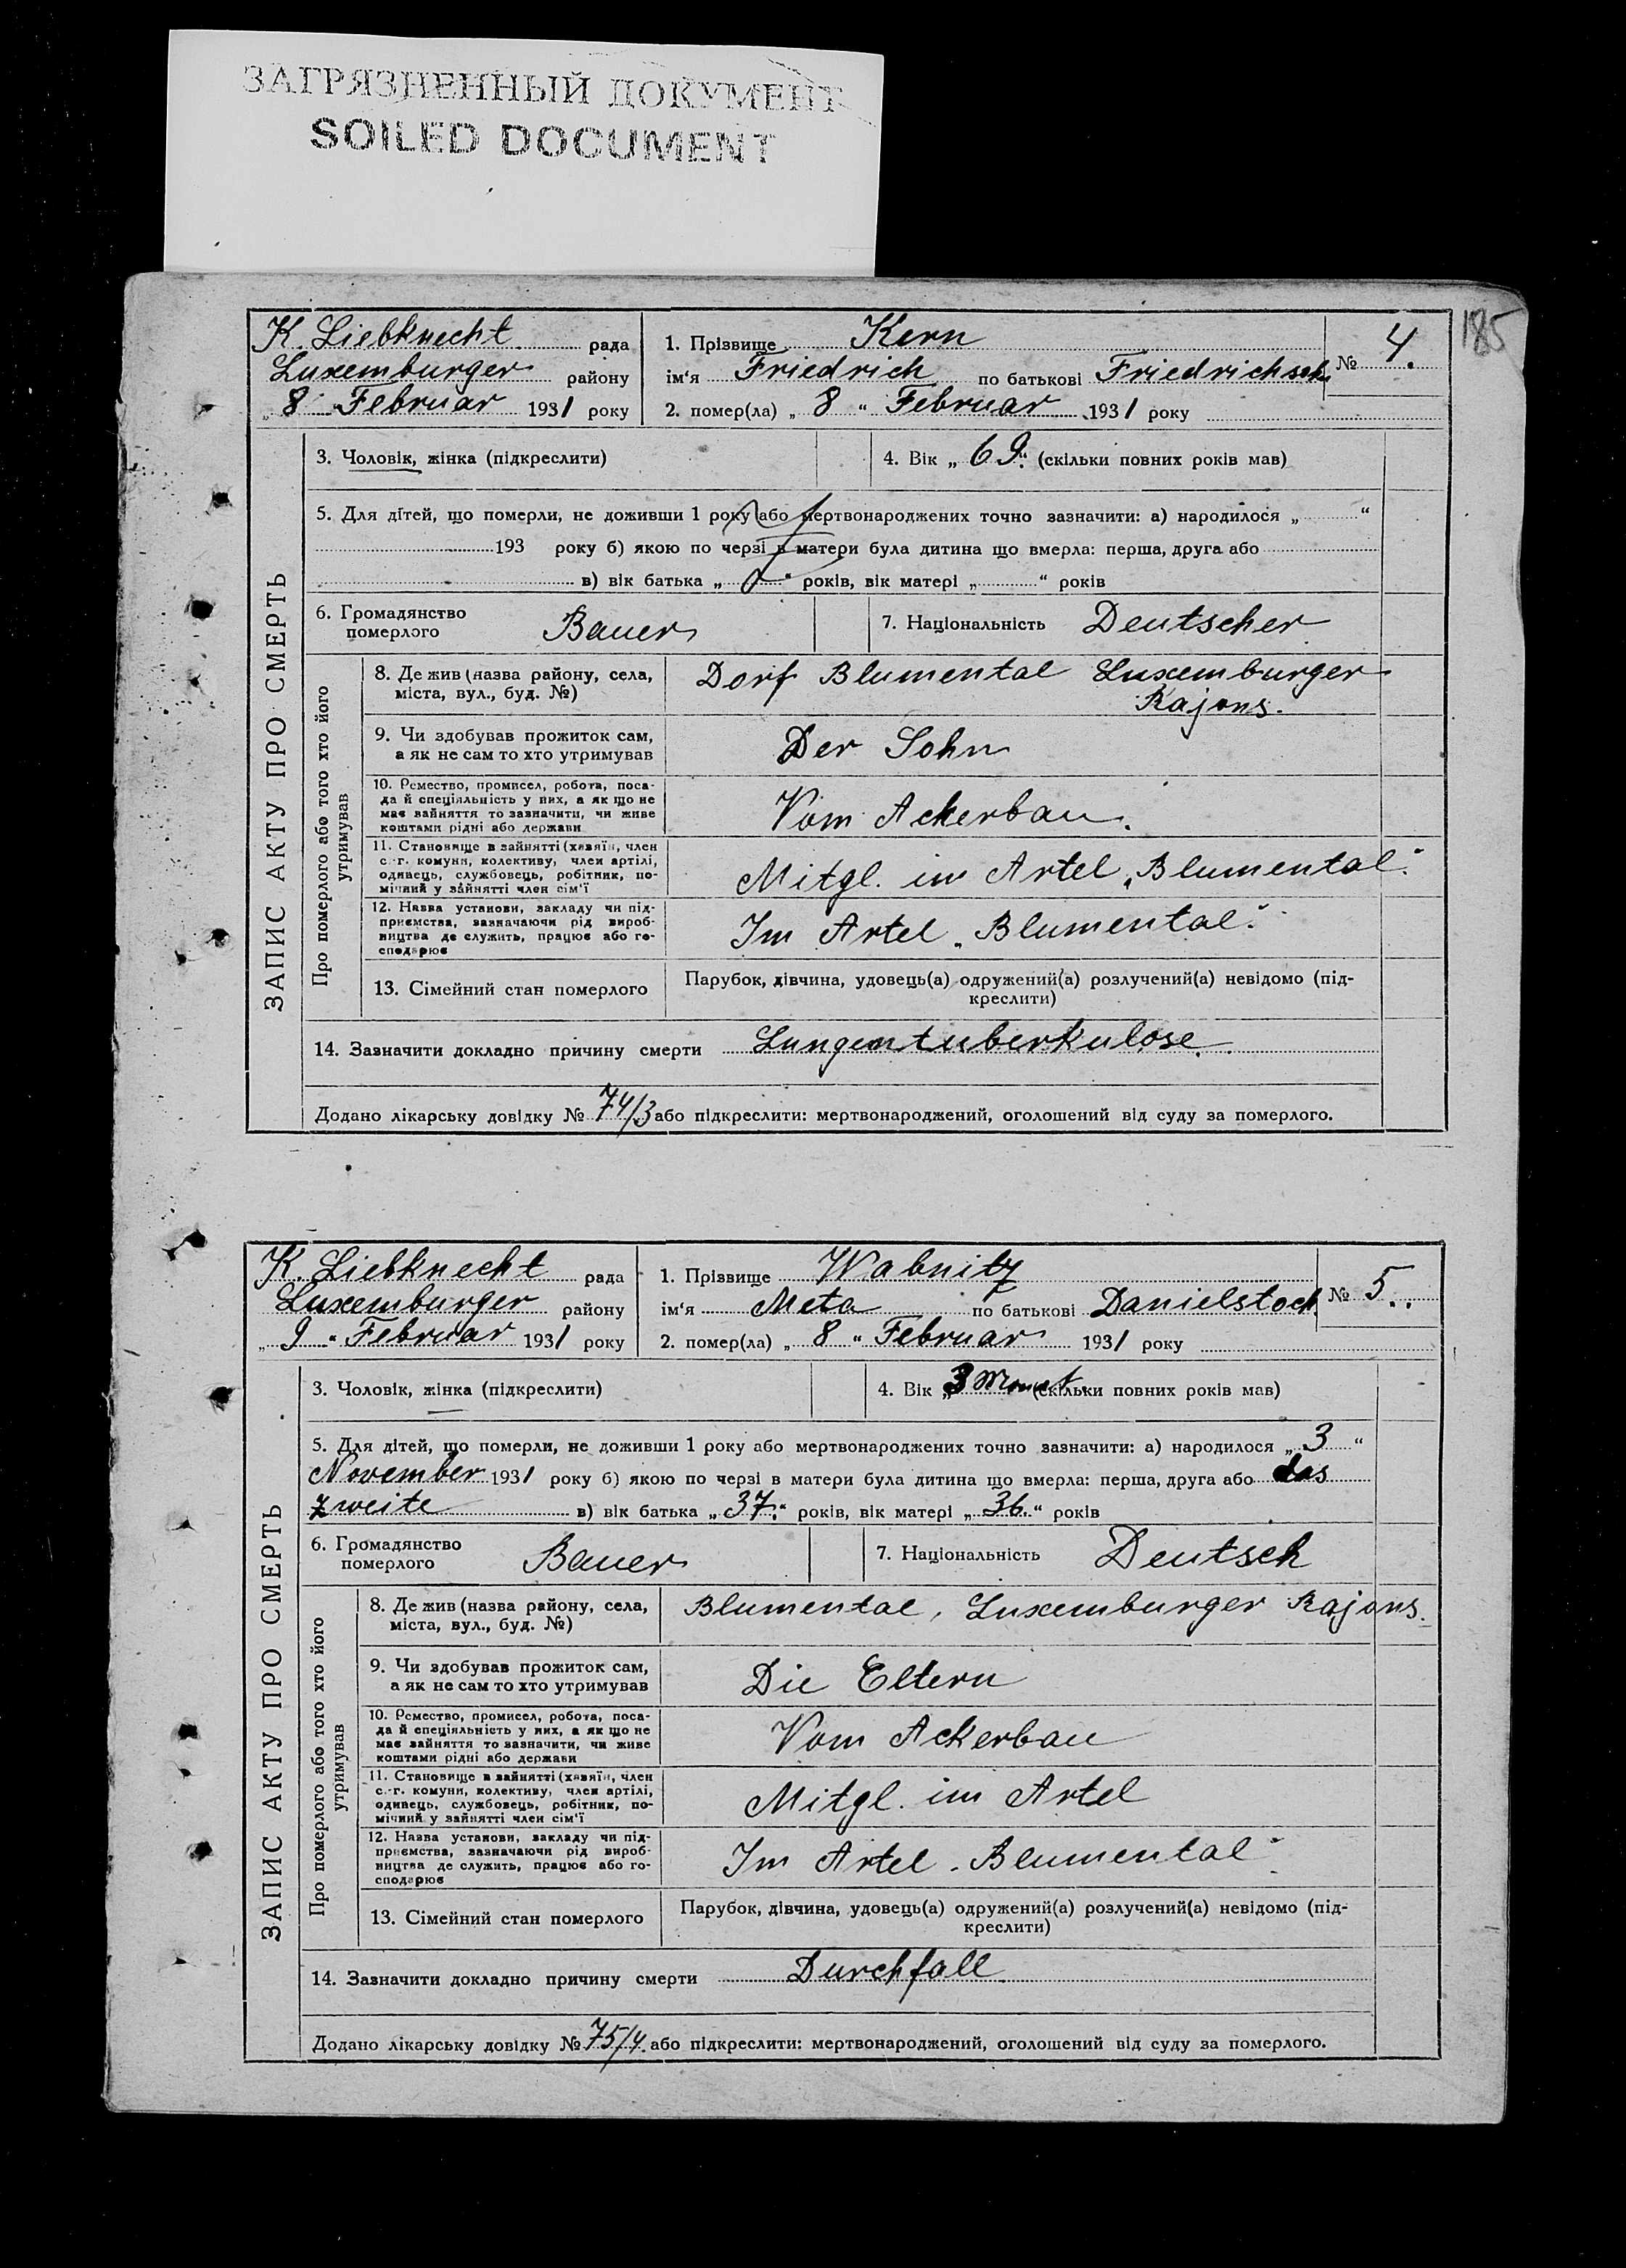 ЗАГРЯЗНЕННЫЙ ДОКУМЕНТ
SOILED DOCUMENT
185
K. Liebknecht рада
Luxemburger району
„ 8 “ Februar 1931 року
1. Прізвище Kern
ім‘я Friedrich по батькові Friedrichsch
№ 4.
2. помер(ла) „ 8 “ Februar 1931 року
ЗАПИС АКТУ ПРО СМЕРТЬ
3. Чоловік, жінка (підкреслити)
4. Вік „ 69. “ (скільки повних років мав)
5. Для дітей, що померли, не доживши 1 року або мертвонароджених точно зазначити: а) народилося „ “
193 року б) якою по черзі в матери була дитина що вмерла: перша, друга або
в) вік батька „ “ років, вік матері „ “ років
6. Громадянство
померлого Bauer
7. Національність Deutscher
Про померлого або того хто його
утримував
8. Де жив (назва району, села,
міста, вул., буд. №)
Dorf Blumental Luxemburger
Rajons.
9. Чи здобував прожиток сам,
а як не сам то хто утримував
Der Sohn
10. Ремество, промисел, робота, поса-
да й спеціяльність у них, а як що не
має зайняття то зазначити, чи живе
коштами рідні або держави
Vom Ackerbau.
11. Становище в зайнятті (хазяїн, член
с.-г. комуни, колективу, член артілі,
одинець, службовець, робітник, по-
мічний у зайнятті член сім‘ї
Mitgl. im Artel „Blumental“.
12. Назва установи, закладу чи під-
приємства, зазначаючи рід вироб-
ництва де служить, працює або го-
сподарює
Im Artel „Blumental“.
13. Сімейний стан померлого
Парубок, дівчина, удовець(а) одружений(а) розлучений(а) невідомо (під-
креслити)
14. Зазначити докладно причину смерти Lungentuberkulose.
Додано лікарську довідку № 74/3 або підкреслити: мертвонароджений, оголошений від суду за померлого.
K. Liebknecht рада
Luxemburger району
„ 9 “ Februar 1931 року
1. Прізвище Wabnitz
ім‘я Meta по батькові Danielstoch
№ 5.
2. помер(ла) „ 8 “ Februar 1931 року
ЗАПИС АКТУ ПРО СМЕРТЬ
3. Чоловік, жінка (підкреслити)
4. Вік „ 3 Monat. (скільки повних років мав)
5. Для дітей, що померли, не доживши 1 року або мертвонароджених точно зазначити: а) народилося „ 3 “
November 1931 року б) якою по черзі в матери була дитина що вмерла: перша, друга або das
zweite в) вік батька „ 37. “ років, вік матері „ 36. “ років
6. Громадянство
померлого Bauer
7. Національність Deutsch
Про померлого або того хто його
утримував
8. Де жив (назва району, села,
міста, вул., буд. №)
Blumental, Luxemburger Rajons.
9. Чи здобував прожиток сам,
а як не сам то хто утримував
Die Eltern
10. Ремество, промисел, робота, поса-
да й спеціяльність у них, а як що не
має зайняття то зазначити, чи живе
коштами рідні або держави
Vom Ackerbau
11. Становище в зайнятті (хазяїн, член
с.-г. комуни, колективу, член артілі,
одинець, службовець, робітник, по-
мічний у зайнятті член сім‘ї
Mitgl. im Artel
12. Назва установи, закладу чи під-
приємства, зазначаючи рід вироб-
ництва де служить, працює або го-
сподарює
Im Artel „Blumental“.
13. Сімейний стан померлого
Парубок, дівчина, удовець(а) одружений(а) розлучений(а) невідомо (під-
креслити)
14. Зазначити докладно причину смерти Durchfall
Додано лікарську довідку № 75/4. або підкреслити: мертвонароджений, оголошений від суду за померлого.